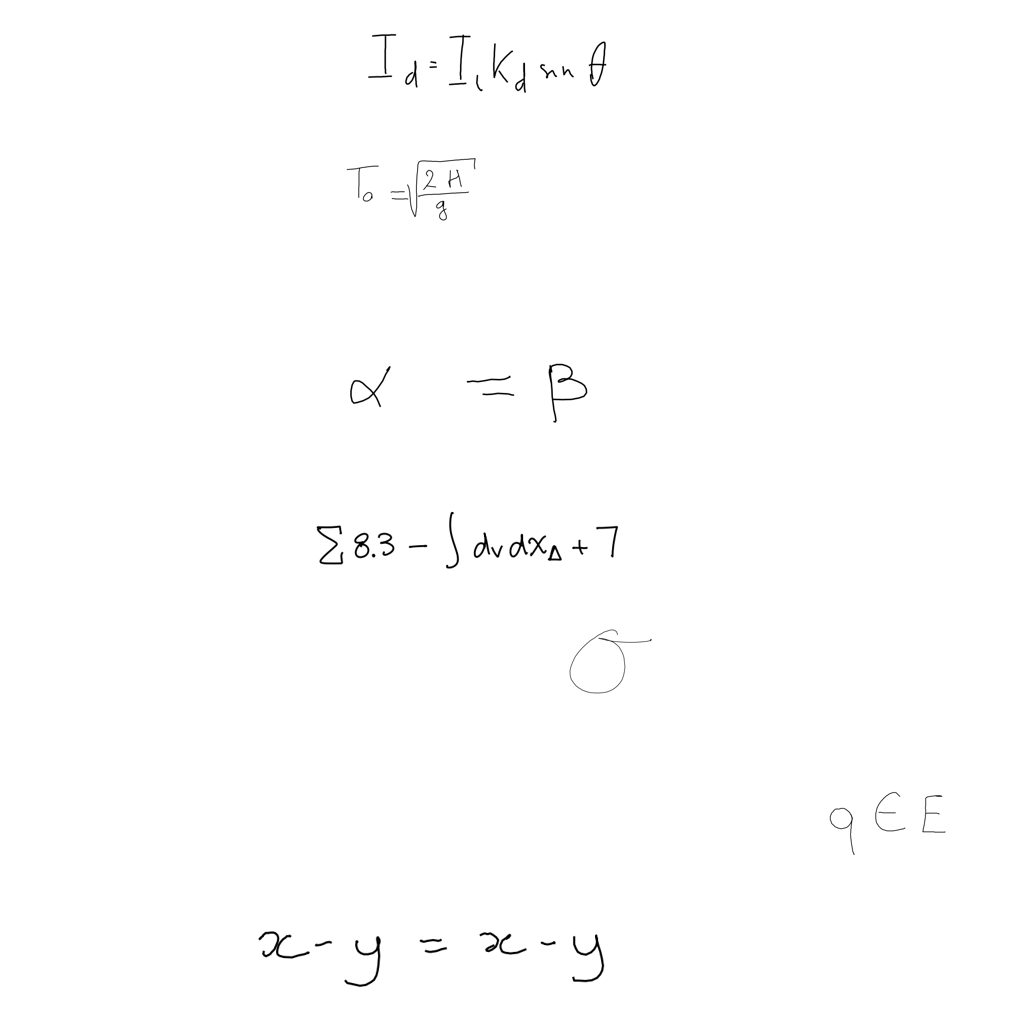 I_d = I_i K_d sin θ
T_0 = √(2H/g)
α = β
∑ 8.3 - ∫ dv dx_Δ + 7
σ
q ∈ E
x - y = x - y